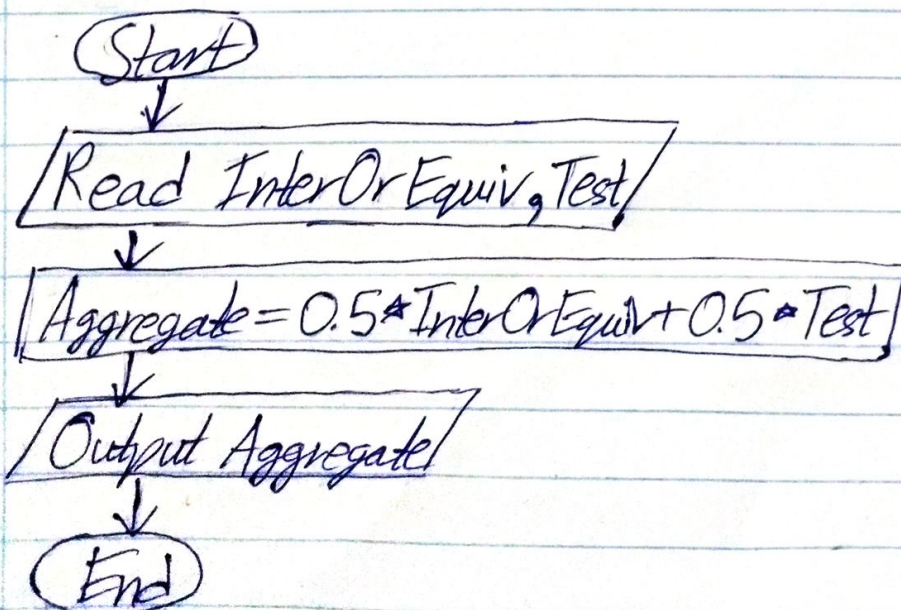 Start
Read InterOrEquiv, Test
Aggregate = 0.5*InterOrEquiv + 0.5*Test
Output Aggregate
End